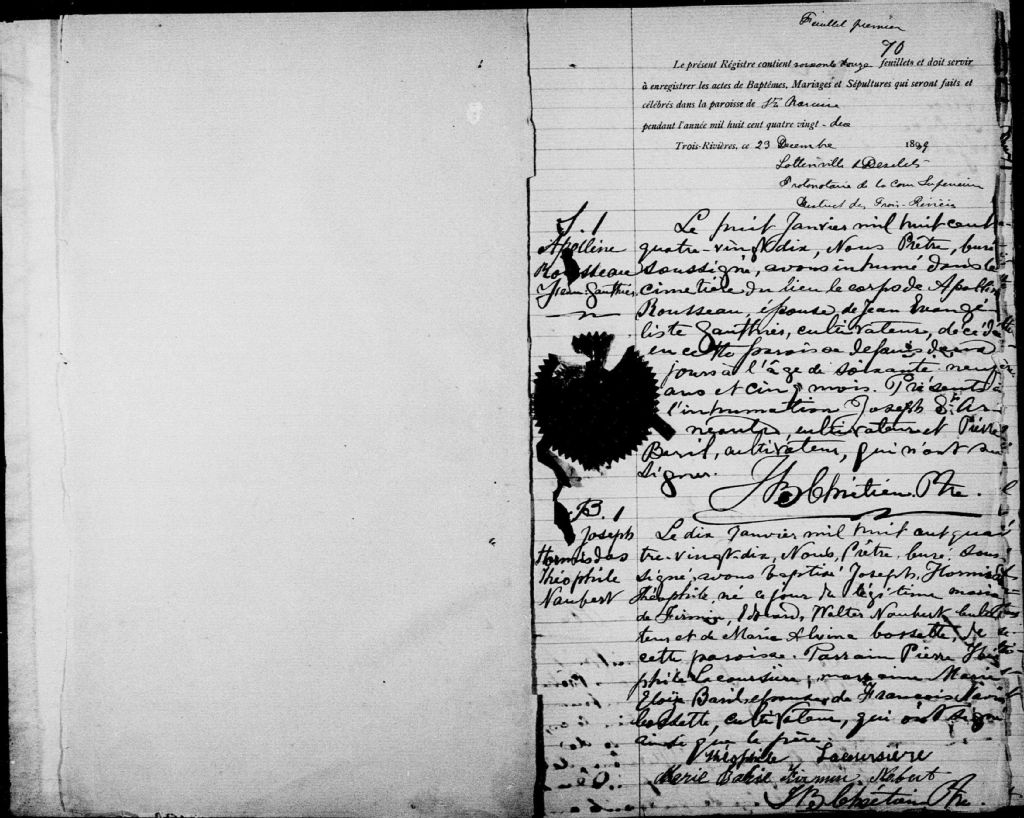 Feuillet premier
70
Le présent Régistre contient soixante douze feuillets et doit servir
à enregistrer les actes de Baptêmes, Mariages et Sépultures qui seront faits et
célébrés dans la paroisse de Ste Narcisse
pendant l'année mil huit cent quatre vingt-dix
Trois-Rivières, ce 23 Decembre 1889
Lottinville & Desilets
Protonotaire de la Cour Superieure
District des Trois-Rivières
S. 1
Apolline
Rousseau
Jean Gauthier
Le huit Janvier mil huit cent
quatre-vingt-dix, Nous Prêtre, Curé
soussigné, avons inhumé dans le
cimetière du lieu le corps de Apolline
Rousseau, épouse de Jean Evangé
liste Gauthier, cultivateur, décédée
en cette paroisse depuis deux
jours à l'âge de soixante neuf
ans et cinq mois. Présents à
l'inhumation Joseph St Ar
neault, cultivateur et Pierre
Baril, cultivateur, qui n'ont su
signer.
JB Chrétien Ptre.
B. 1
Joseph
Hormisdas
Théophile
Naubert
Le dix Janvier mil huit cent qua
tre-vingt-dix, Nous, Prêtre, Curé sous
signé, avons baptisé Joseph, Hormisdas
Théophile né ce jour du légitime mariage
de Firmin, Edouard, Walter Naubert cultiva
teur et de Marie Alvina Cossette, de
cette paroisse. Parrain Pierre Théo
phile Lacoursière, marraine Marie
Eloïse Baril, épouse de François Xavier
Cossette, cultivateur, qui ont signé
ainsi que le père.
Théophile Lacoursière
Marie Barile Firmin Nobert
JB Chrétien Ptre.